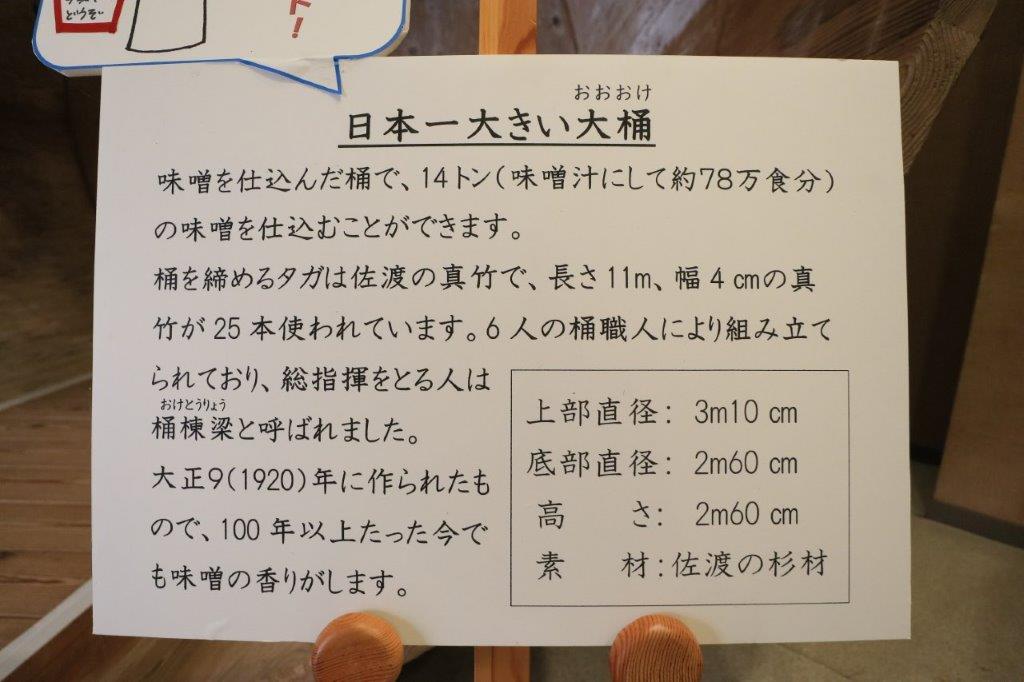 ト!
おおおけ
日本一大きい大桶
味噌を仕込んだ桶で、14トン(味噌汁にして約78万食分)
の味噌を仕込むことができます。
桶を締めるタガは佐渡の真竹で、長さ11m、幅4cmの真
竹が25本使われています。6人の桶職人により組み立て
られており、総指揮をとる人は
おけとうりょう
桶棟梁と呼ばれました。
大正9(1920)年に作られたも
ので、100年以上たった今で
も味噌の香りがします。
上部直径: 3m10cm
底部直径: 2m60cm
高さ: 2m60cm
素材:佐渡の杉材